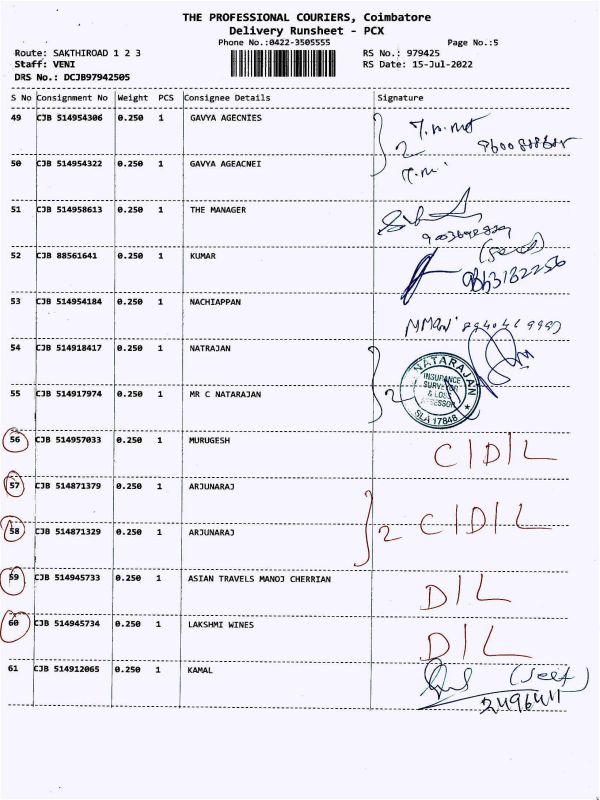 THE PROFESSIONAL COURIERS, Coimbatore
Delivery Runsheet - PCX
Phone No.:0422-3505555 Page No.:5
Route: SAKTHIROAD 1 2 3 RS No.: 979425
Staff: VENI RS Date: 15-Jul-2022
DRS No.: DCJB97942505
S No Consignment No Weight PCS Consignee Details Signature
49 CJB 514954306 0.250 1 GAVYA AGECNIES
2
50 CJB 514954322 0.250 1 GAVYA AGEACNEI
51 CJB 514958613 0.250 1 THE MANAGER
52 CJB 88561641 0.250 1 KUMAR
9863182256
53 CJB 514954184 0.250 1 NACHIAPPAN
54 CJB 514918417 0.250 1 NATRAJAN
2
NATARAJAN
INSURANCE
SURVEYOR
& LOSS
ASSESSOR
SLA 17848
55 CJB 514917974 0.250 1 MR C NATARAJAN
56 CJB 514957033 0.250 1 MURUGESH C/D/L
57 CJB 514871379 0.250 1 ARJUNARAJ
2 C/D/L
58 CJB 514871329 0.250 1 ARJUNARAJ
59 CJB 514945733 0.250 1 ASIAN TRAVELS MANOJ CHERRIAN D/L
60 CJB 514945734 0.250 1 LAKSHMI WINES D/L
61 CJB 514912065 0.250 1 KAMAL